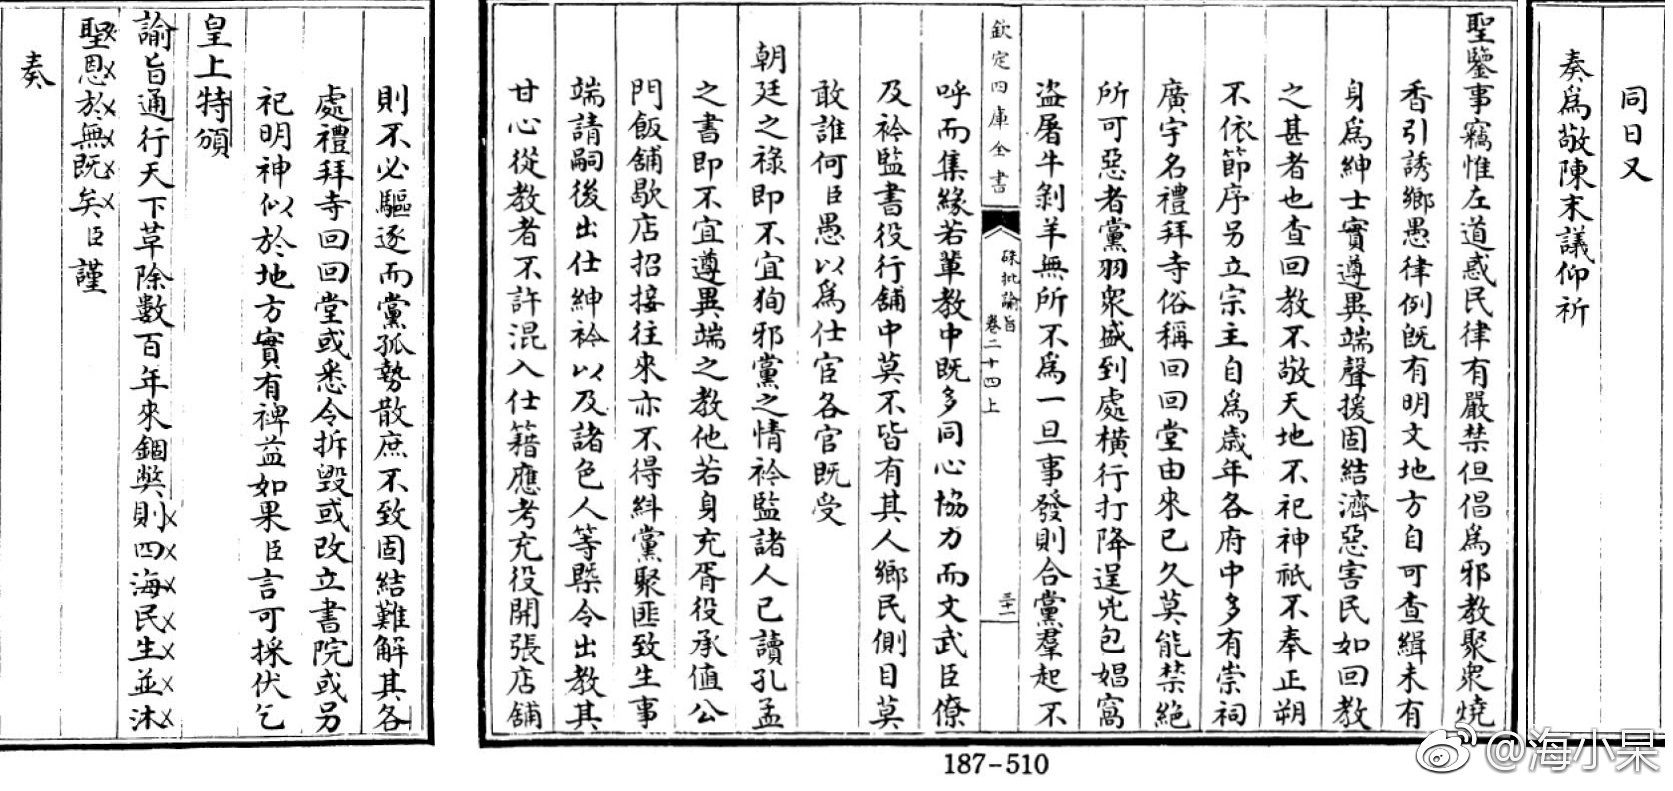 同日又
奏爲敬陳末議仰祈
聖鑒事竊惟左道惑民律有嚴禁但倡爲邪教聚衆燒
香引誘鄉愚律例旣有明文地方自可查緝未有
身爲紳士實遵異端聲援固結濟惡害民如回教
之甚者也查回教不敬天地不祀神祇不奉正朔
不依節序另立宗主自爲歲年各府中多有崇祠
廣宇名禮拜寺俗稱回回堂由來已久莫能禁絕
所可惡者黨羽衆盛到處橫行打降逞兇包娼窩
盜屠牛剝羊無所不爲一旦事發則合黨羣起不
欽定四庫全書
硃批諭旨
卷二十四上
三十一
呼而集緣若輩教中旣多同心協力而文武臣僚
及衿監書役行舖中莫不皆有其人鄉民側目莫
敢誰何臣愚以爲仕宦各官既受
朝廷之祿即不宜狥邪黨之情衿監諸人已讀孔孟
之書即不宜遵異端之教他若身充胥役承值公
門飯舖歇店招接往來亦不得糾黨聚匪致生事
端請嗣後出仕紳衿以及諸色人等槩令出教其
甘心從教者不許混入仕籍應考充役開張店舖
187-510
則不必驅逐而黨孤勢散庶不致固結難解其各
處禮拜寺回回堂或悉令拆毀或改立書院或另
祀明神似於地方實有裨益如果臣言可採伏乞
皇上特頒
諭旨通行天下草除數百年來錮獘則四海民生並沐
聖恩於無旣矣臣謹
奏
@海小杲